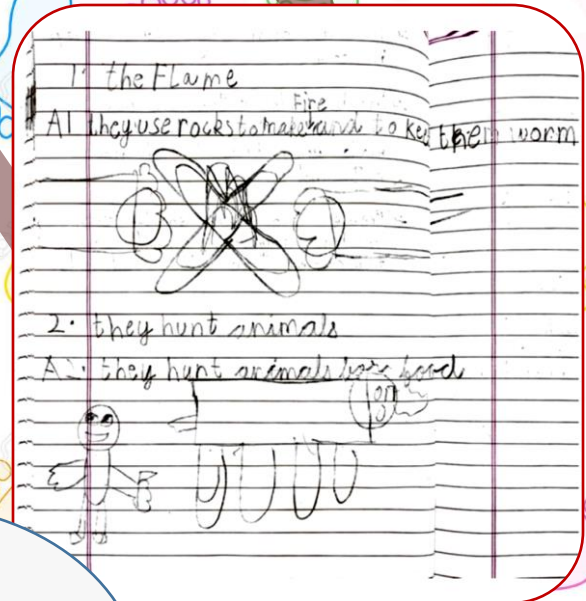 1. the Flame
Fire
A1 they use rocks to make and to kee them worm
2. they hunt animals
A2. they hunt animals fore food